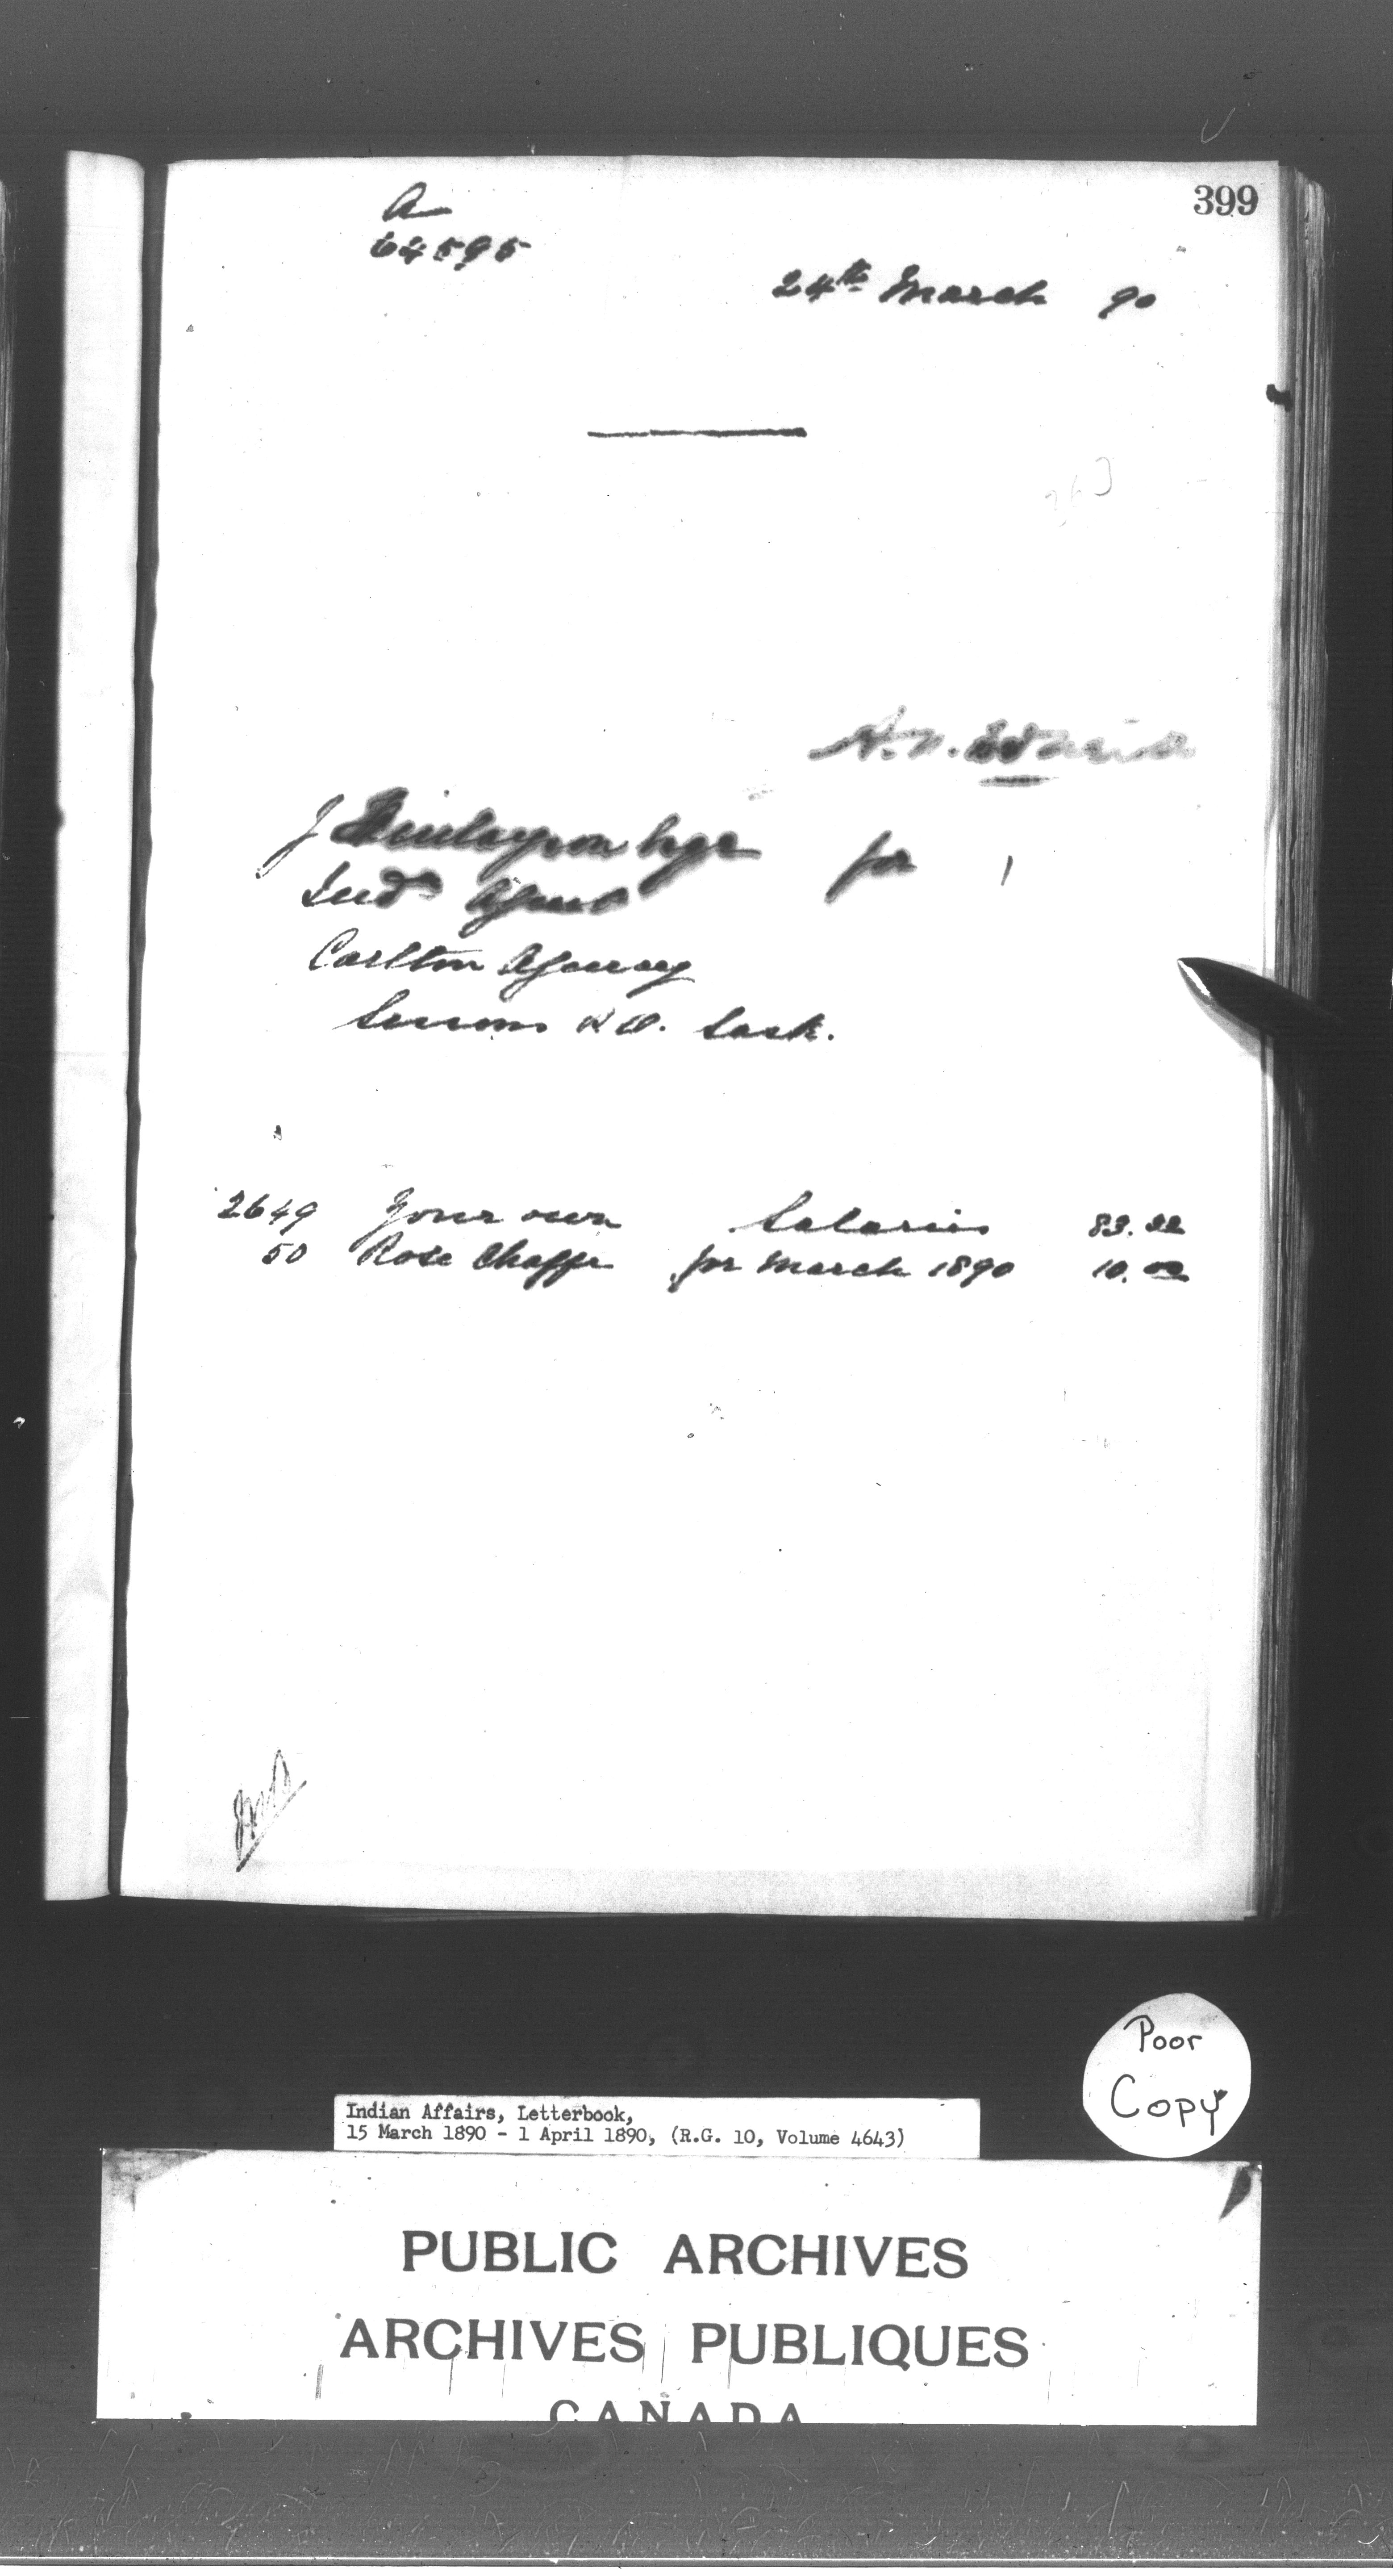 399
A
64595
24th March 90
J Finlayson Esqr for
Ind Agent
Carlton Agency
P.O. Sask.
2649 Your own Salaries 83.33
50 Rose Chaffe for March 1890 10.00
Poor
Copy
Indian Affairs, Letterbook,
15 March 1890 - 1 April 1890, (R.G. 10, Volume 4643)
PUBLIC ARCHIVES
ARCHIVES PUBLIQUES
CANADA